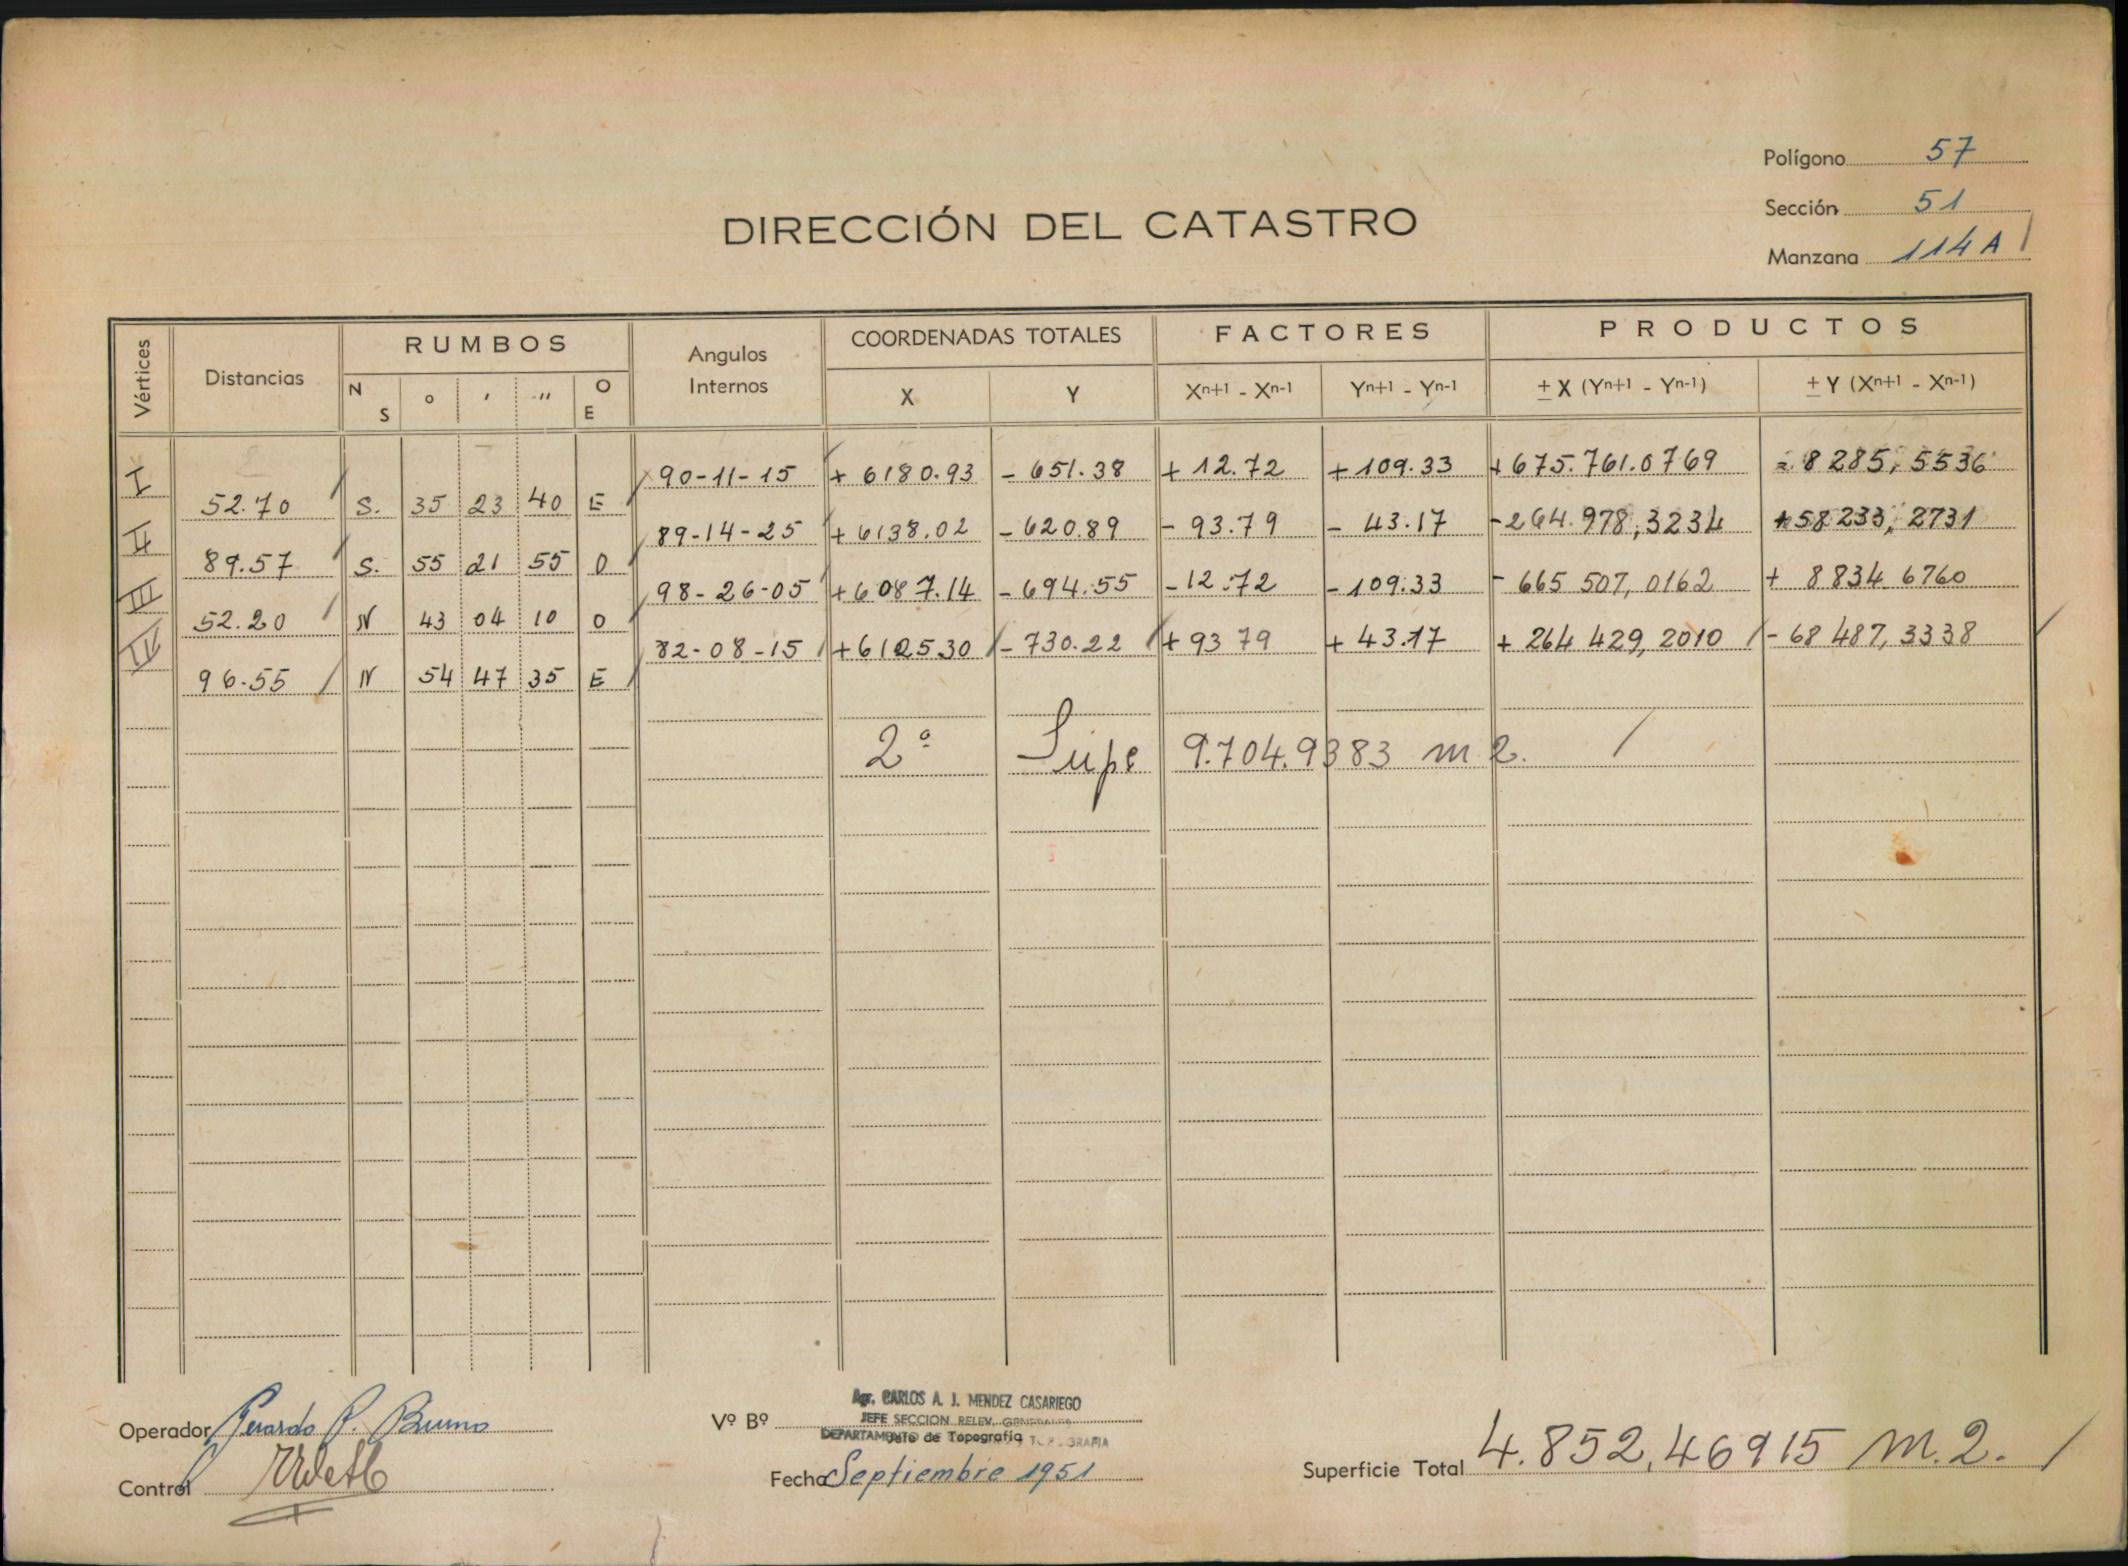 Polígono 57
Sección 51
Manzana 114 A
DIRECCIÓN DEL CATASTRO
Vértices Distancias RUMBOS Angulos Internos COORDENADAS TOTALES FACTORES PRODUCTOS
N S o ' '' O E X Y Xn+1 - Xn-1 Yn+1 - Yn-1 ± X (Yn+1 - Yn-1) ± Y (Xn+1 - Xn-1)
I 90-11-15 + 6180.93 - 651.38 + 12.72 + 109.33 + 675.761.0769 - 8285,5536
52.70 S. 35 23 40 E
II 89-14-25 + 6138.02 - 620.89 - 93.79 - 43.17 - 264.978,3234 + 58233,2731
89.57 S. 55 21 55 O
III 98-26-05 + 6087.14 - 694.55 - 12.72 - 109.33 - 665 507,0162 + 8834 6760
52.20 N 43 04 10 O
IV 82-08-15 + 6125.30 - 730.22 + 93 79 + 43.17 + 264 429,2010 - 68 487,3338
96.55 N 54 47 35 E
2ª Supe 9.704.9383 m 2.
Operador Gerardo P. Bruno
Control
Vº Bº Agr. CARLOS A. J. MENDEZ CASARIEGO
JEFE SECCION RELEV. GENERALES
DEPARTAMENTO DE TOPOGRAFIA
Jefe de Topografía
Fecha Septiembre 1951
Superficie Total 4.852,46915 m.2.